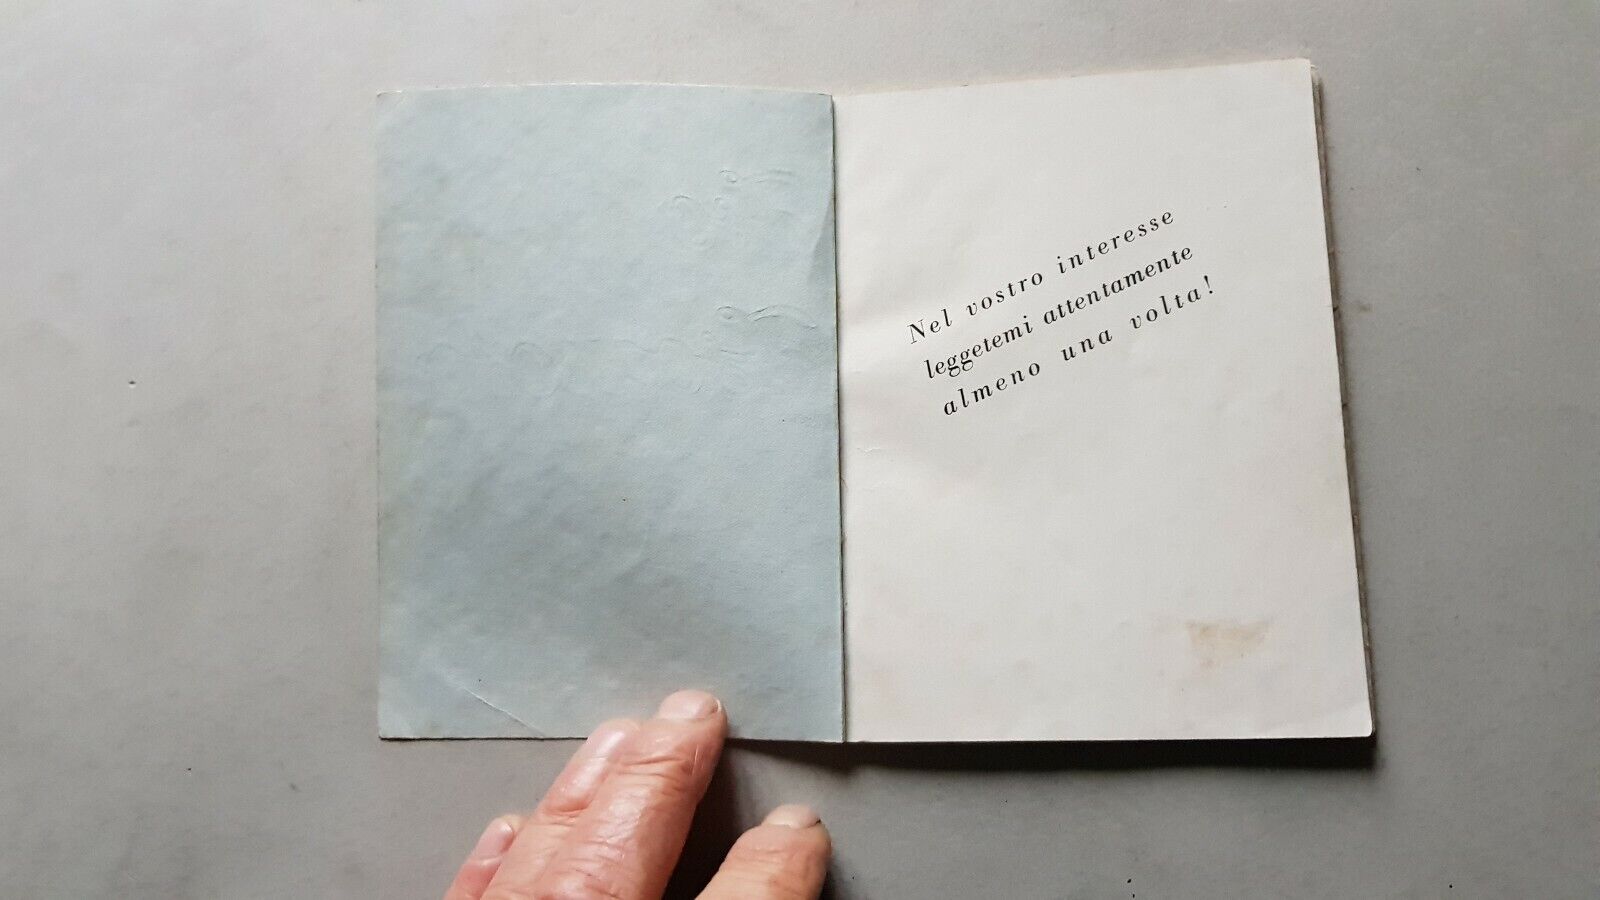 Nel vostro interesse
leggetemi attentamente
almeno una volta!